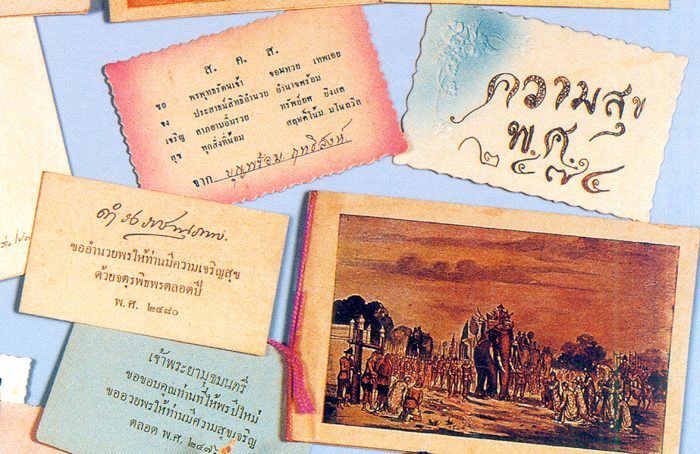 ส. ค. ส.
ขอ พรพุทธรัตนเจ้า จอมทวย เทพเอย
จง ประสาธน์สิทธิอำนวย อำนาจพร้อม
เจริญ ลาภอาบอิ่มรวย ทรัพย์ยศ ยิ่งแล
สุข ทุกสิ่งที่น้อม สฤษดิ์โน้ม มโนถวิล
จาก บุญพร้อม ฤทธิสงน์
ความสุข
พ.ศ.
๒๔๗๔
ขออำนวยพรให้ท่านมีความเจริญสุข
ด้วยจตุรพิธพรตลอดปี
พ. ศ. ๒๔๘๐
เจ้าพระยามุขมนตรี
ขอขอบคุณท่านที่ให้พรปีใหม่
ขออวยพรให้ท่านมีความสุขเจริญ
ตลอด พ.ศ. ๒๔๗